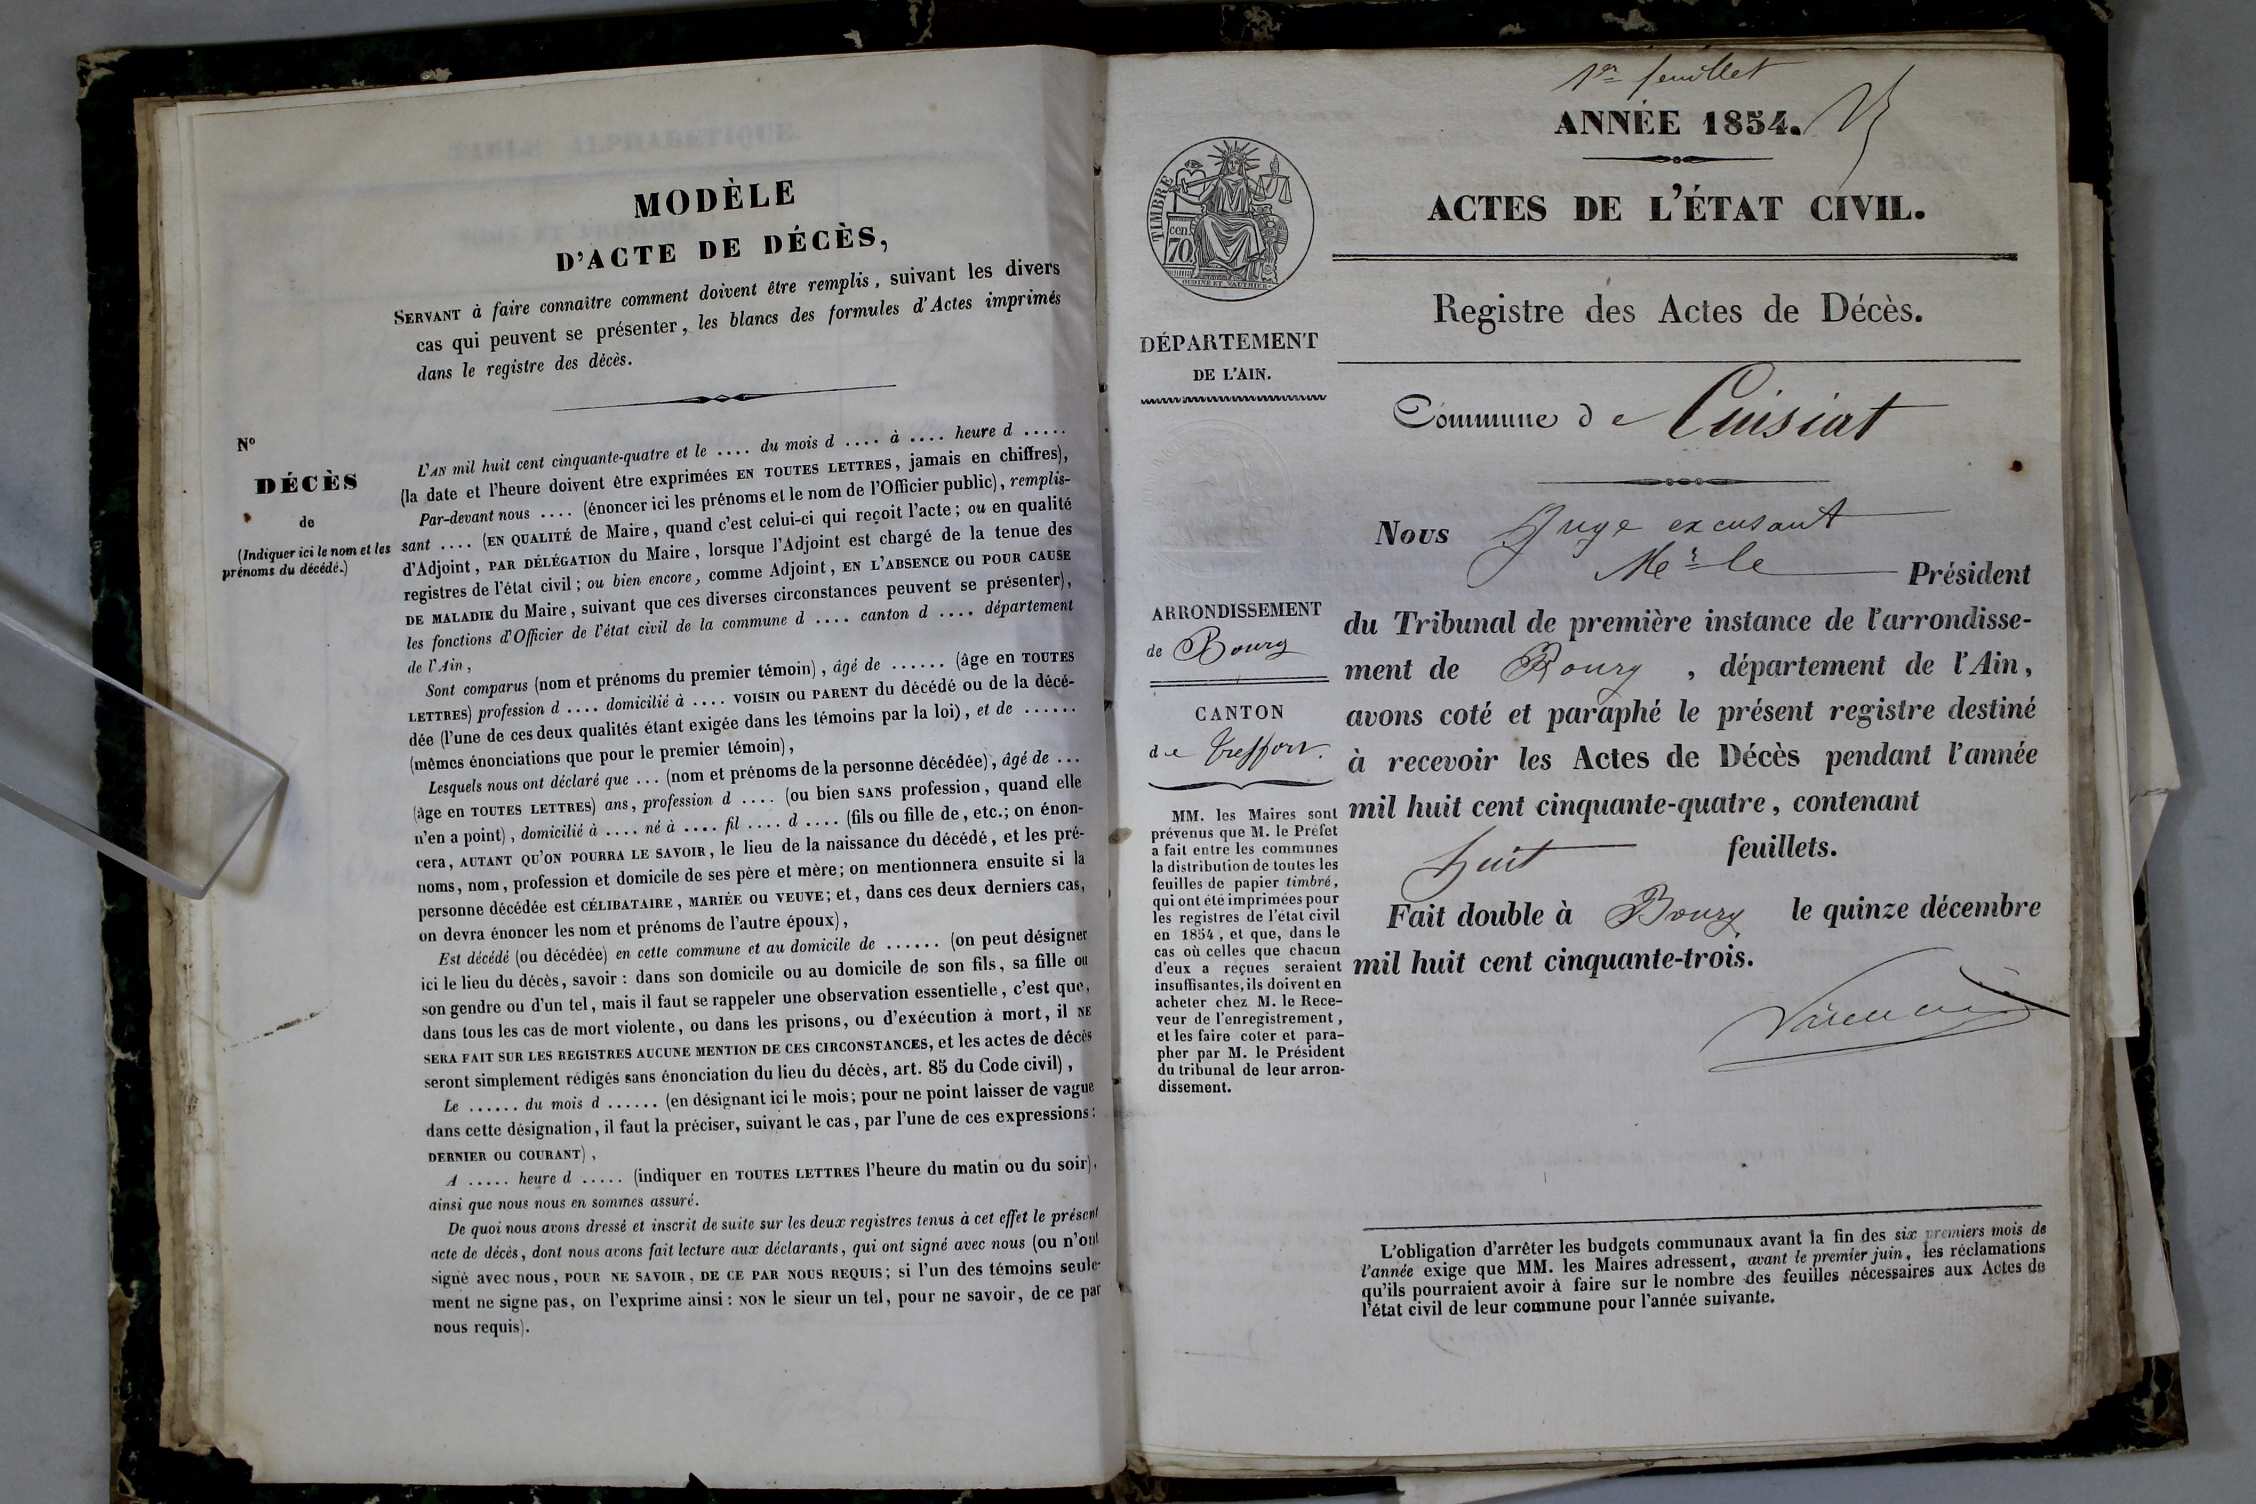 MODÈLE
D'ACTE DE DÉCÈS,
SERVANT à faire connaître comment doivent être remplis, suivant les divers
cas qui peuvent se présenter, les blancs des formules d'Actes imprimés
dans le registre des décès.
N°
DÉCÈS
de
(Indiquer ici le nom et les
prénoms du décédé.)
L'AN mil huit cent cinquante-quatre et le .... du mois d .... à .... heure d .....
(la date et l'heure doivent être exprimées EN TOUTES LETTRES, jamais en chiffres),
Par-devant nous .... (énoncer ici les prénoms et le nom de l'Officier public), remplis-
sant .... (EN QUALITÉ de Maire, quand c'est celui-ci qui reçoit l'acte; ou en qualité
d'Adjoint, PAR DÉLÉGATION du Maire, lorsque l'Adjoint est chargé de la tenue des
registres de l'état civil; ou bien encore, comme Adjoint, EN L'ABSENCE OU POUR CAUSE
DE MALADIE du Maire, suivant que ces diverses circonstances peuvent se présenter),
les fonctions d'Officier de l'état civil de la commune d .... canton d .... département
de l'Ain,
Sont comparus (nom et prénoms du premier témoin), âgé de ...... (âge en TOUTES
LETTRES) profession d .... domicilié à .... VOISIN OU PARENT du décédé ou de la décé-
dée (l'une de ces deux qualités étant exigée dans les témoins par la loi), et de ......
(mêmes énonciations que pour le premier témoin),
Lesquels nous ont déclaré que ... (nom et prénoms de la personne décédée), âgé de ...
(âge en TOUTES LETTRES) ans, profession d .... (ou bien SANS profession, quand elle
n'en a point), domicilié à .... né à .... fil .... d .... (fils ou fille de, etc.; on énon-
cera, AUTANT QU'ON POURRA LE SAVOIR, le lieu de la naissance du décédé, et les pré-
noms, nom, profession et domicile de ses père et mère; on mentionnera ensuite si la
personne décédée est CÉLIBATAIRE, MARIÉE OU VEUVE; et, dans ces deux derniers cas,
on devra énoncer les nom et prénoms de l'autre époux),
Est décédé (ou décédée) en cette commune et au domicile de ...... (on peut désigner
ici le lieu du décès, savoir : dans son domicile ou au domicile de son fils, sa fille ou
son gendre ou d'un tel, mais il faut se rappeler une observation essentielle, c'est que,
dans tous les cas de mort violente, ou dans les prisons, ou d'exécution à mort, il NE
SERA FAIT SUR LES REGISTRES AUCUNE MENTION DE CES CIRCONSTANCES, et les actes de décès
seront simplement rédigés sans énonciation du lieu du décès, art. 85 du Code civil),
Le ...... du mois d ...... (en désignant ici le mois; pour ne point laisser de vague
dans cette désignation, il faut la préciser, suivant le cas, par l'une de ces expressions:
DERNIER OU COURANT),
A ..... heure d ..... (indiquer en TOUTES LETTRES l'heure du matin ou du soir),
ainsi que nous nous en sommes assuré.
De quoi nous avons dressé et inscrit de suite sur les deux registres tenus à cet effet le présent
acte de décès, dont nous avons fait lecture aux déclarants, qui ont signé avec nous (ou n'ont
signé avec nous, POUR NE SAVOIR, DE CE PAR NOUS REQUIS; si l'un des témoins seule-
ment ne signe pas, on l'exprime ainsi : NON le sieur un tel, pour ne savoir, de ce par
nous requis).
1er feuillet
ANNÉE 1854.
ACTES DE L'ÉTAT CIVIL.
TIMBRE
70 cen.
Registre des Actes de Décès.
DÉPARTEMENT
DE L'AIN.
Commune de Cuisiat
Nous Juge excusant
Mr le Président
du Tribunal de première instance de l'arrondisse-
ment de Bourg, département de l'Ain,
avons coté et paraphé le présent registre destiné
à recevoir les Actes de Décès pendant l'année
mil huit cent cinquante-quatre, contenant
huit feuillets.
Fait double à Bourg le quinze décembre
mil huit cent cinquante-trois.
ARRONDISSEMENT
de Bourg
CANTON
de Treffort.
MM. les Maires sont
prévenus que M. le Préfet
a fait entre les communes
la distribution de toutes les
feuilles de papier timbré,
qui ont été imprimées pour
les registres de l'état civil
en 1854, et que, dans le
cas où celles que chacun
d'eux a reçues seraient
insuffisantes, ils doivent en
acheter chez M. le Rece-
veur de l'enregistrement,
et les faire coter et para-
pher par M. le Président
du tribunal de leur arron-
dissement.
L'obligation d'arrêter les budgets communaux avant la fin des six premiers mois de
l'année exige que MM. les Maires adressent, avant le premier juin, les réclamations
qu'ils pourraient avoir à faire sur le nombre des feuilles nécessaires aux Actes de
l'état civil de leur commune pour l'année suivante.